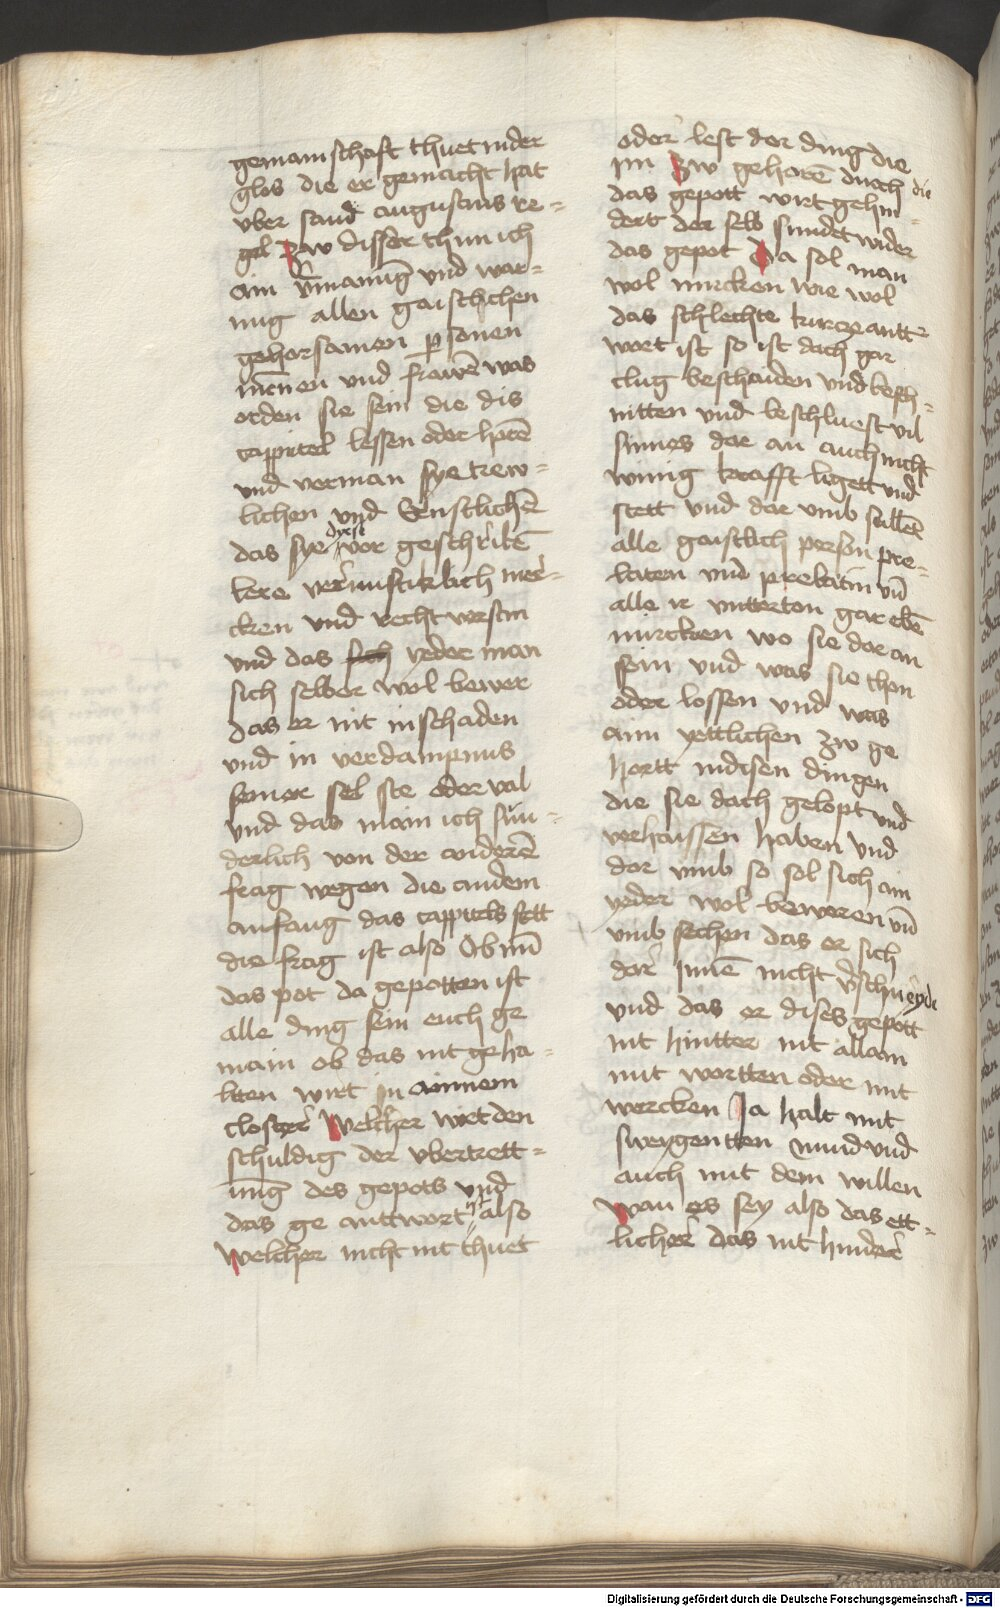 gemainschaft thuet in der
glos die er gemacht hat
vber sand augustins re=
gel Zw disser thun ich
ain v̄manūg und war=
nug allen gaistlichen
gehorsamen personen
mēnen und frawē was
orden sie sein die dis
cappitel lessen oder horē
und verman sye trew=
lichen und Ernstlichē
das sye dyese vor geschribē
lere vernuftiklich mer=
cken und recht versten
und das yeder man
sich selber wol bewer
das er nit in schaden
und in verdampnus
seiner sel ste oder val
und das main ich sun=
derlich von der anderē
frag wegen die an dem
anfang das cappitels stett
die frag ist also Ob nū
das pot da gepotten ist
alle ding sein euch ge
main ob das nit geha=
lten wirt in ainnem
closter Welcher wer den
schuldig der vbertrett=
ūng des gepots und
das ge anttwort also
Welcher nicht nit thuet
oder lest der ding die
im Zw gehorē durch die
das gepott wirt gehin=
dert der selb sundet wider
das gepot Da sol man
wol mircken wie wol
das schlechte kurcze antt=
wort ist so ist dach gar
clug beschaiden und besch=
nitten und beschluest vil
sinnes dar an auch nicht
winig krafft ligett und
stett und dar umb sullē
alle gaistlich person pre=
laten und prelatin vn̄
alle ir untterton gar ebē
mircken wo sie dar an
sein und was sie thon
oder lossen und was
aim yettlichen zw ge
hortt in disen dingen
die sie dach gelopt und
verhaissen haben und
dar umb so sol sich ain
yeder wol beweren vn̄
umb sechen das er sich
dar Innē nicht v̄schneyde
und das er dises gepott
nit hintter nit allain
mit wortten oder mit
wercken Ja halt mit
sweygentten mund und
auch mit dem willen
wan es sey also das ett=
licher das nit hinder
Digitalisierung gefördert durch die Deutsche Forschungsgemeinschaft - DFG